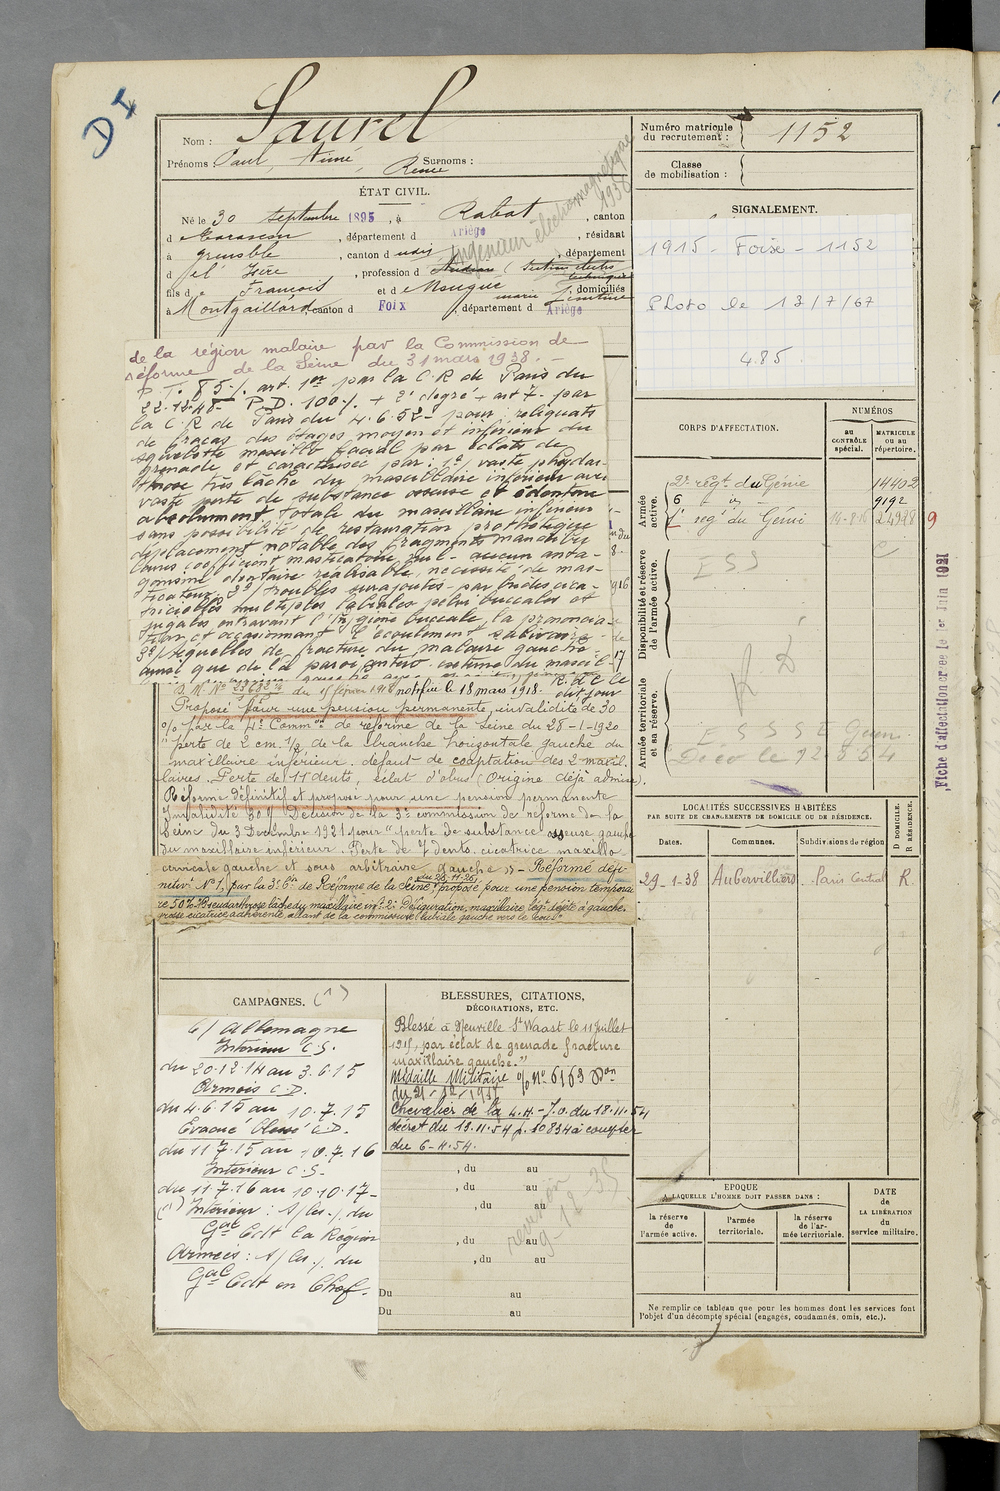 D I
Nom : Saurel
Prénoms : Paul, Aimé, René Surnoms :
Ingénieur électromagnétique
1938
ÉTAT CIVIL.
Né le 30 septembre 1895, à Rabat, canton
d Tarascon, département d Ariège, résidant
à grenoble, canton d udis, département
d el' Isère, profession d
fils d e François et d e Mauque marie domiciliés
à Montgaillard canton d Foix, département d Ariège
de la région malaire par la Commission de
réforme de la Seine du 31 mars 1938. -
P. T. 85 % art. 1er par la C.R de Paris du
22.12.48- P.D. 100 % + 2° degré + art 7- par
la C.R de Paris du 4.6.52- pour : reliquats
de fracas des étages moyen et inférieur du
squelette maxillo facial par éclats de
grenade et caractérisé par : 1°/ vaste pseudar-
throse très lâche du maxillaire inférieur avec
vaste perte de substance osseuse et édentation
absolument totale du maxillaire inférieur
sans possibilité de restauration prothétique
déplacement notable des fragments mandibu
laires coefficient masticatoire nul - aucun anta-
gonisme dentaire réalisable, nécessité de mas-
ticateur. 2°/ troubles surajoutés par brides cica-
tricielles multiples labiales pelvi buccales et
jugales entravant l'hygiène buccale, la prononcia-
tion et occasionnant l'écoulement salivaire -
3°/ séquelles de fracture du malaire gauche
ainsi que de la paroi antéro externe du maxil-
D. M. No 23683 3/4 du 15 février 1918 notifiée le 18 mars 1918. R. d. C le
dit jour
Proposé pour une pension permanente, invalidité de 30
% par la 4e Common de réforme de la Seine du 28-1-1920
" perte de 2 cm. 1/2 de la branche horizontale gauche du
maxillaire inférieur. défaut de coaptation des 2 maxil.
laires. Perte de 11 dents, éclat d'obus (Origine déjà admise).
Réforme définitif et proposé pour une pension permanente
Invalidité 30 % Décision de la 3e commission de réforme de la
Seine du 3 Décembre 1921 pour " perte de substance osseuse gauche
du maxillaire inférieur. Perte de 7 dents. cicatrice maxillo
cervicale gauche et sous arbitraire gauche » - Réformé défi-
nitivt No 1, par la 3e Cn de Réforme de la Seine du 26.11.26, proposé pour une pension temporai
re 50% "Pseudarthrose lâche du maxillaire infr. 2° Défiguration, maxillaire légt dejeté à gauche
grosse cicatrice adhérente allant de la commissure labiale gauche vers le cou"
CAMPAGNES. (1)
C/ Allemagne
Intérieur C.S.
du 20.12.14 au 3.6.15
Armées C.D.
du 4.6.15 au 10.7.15
Evacué blessé C.D.
du 11.7.15 au 10.7.16
Intérieur C.S-
du 11.7.16 au 10.10.17-
(1) Intérieur : A/ les ./. du
Gal Cdt la Région
Armées : A/ les ./. du
Gal Cdt en Chef-
BLESSURES, CITATIONS,
DÉCORATIONS, ETC.
Blessé à Neuville St Waast le 11 juillet
1915, par éclat de grenade fracture
maxillaire gauche."
Médaille Militaire No 6163
du 21-12-1917
Chevalier de la L.H. - J.O. du 18.11.54
décret du 13.11.54 p. 10834 à compter
du 6-4.54.
, du au
, du au
, du au
, du au
, du au
Du au
Du au
révision
9-12-35
Numéro matricule
du recrutement : 1152
Classe
de mobilisation :
SIGNALEMENT.
1915 - Foix - 1152
Photo le 13/7/67
485
CORPS D'AFFECTATION.
NUMÉROS
au
CONTRÔLE
spécial.
MATRICULE
ou au
répertoire.
Armée
active.
2e régt. du Génie 14402
6 id - 9192
1r régt du Génie 24998 9
Disponibilité et réserve
de l'armée active.
E S S
Armée territoriale
et sa réserve.
R D
E S S S E Gén.
Déco le 12-8 54
Fiche d'affectation créée le 1er Juin 1921
LOCALITÉS SUCCESSIVES HABITÉES
PAR SUITE DE CHANGEMENTS DE DOMICILE OU DE RÉSIDENCE.
D DOMICILE.
R RÉSIDENCE.
Dates. Communes. Subdivisions de région
29-1-38 Aubervilliers Paris Central R.
EPOQUE
A LAQUELLE L'HOMME DOIT PASSER DANS :
DATE
de
LA LIBÉRATION
du
service militaire.
la réserve
de
l'armée active.
l'armée
territoriale.
la réserve
de l'ar-
mée territoriale.
Ne remplir ce tableau que pour les hommes dont les services font
l'objet d'un décompte spécial (engagés, condamnés, omis, etc.).